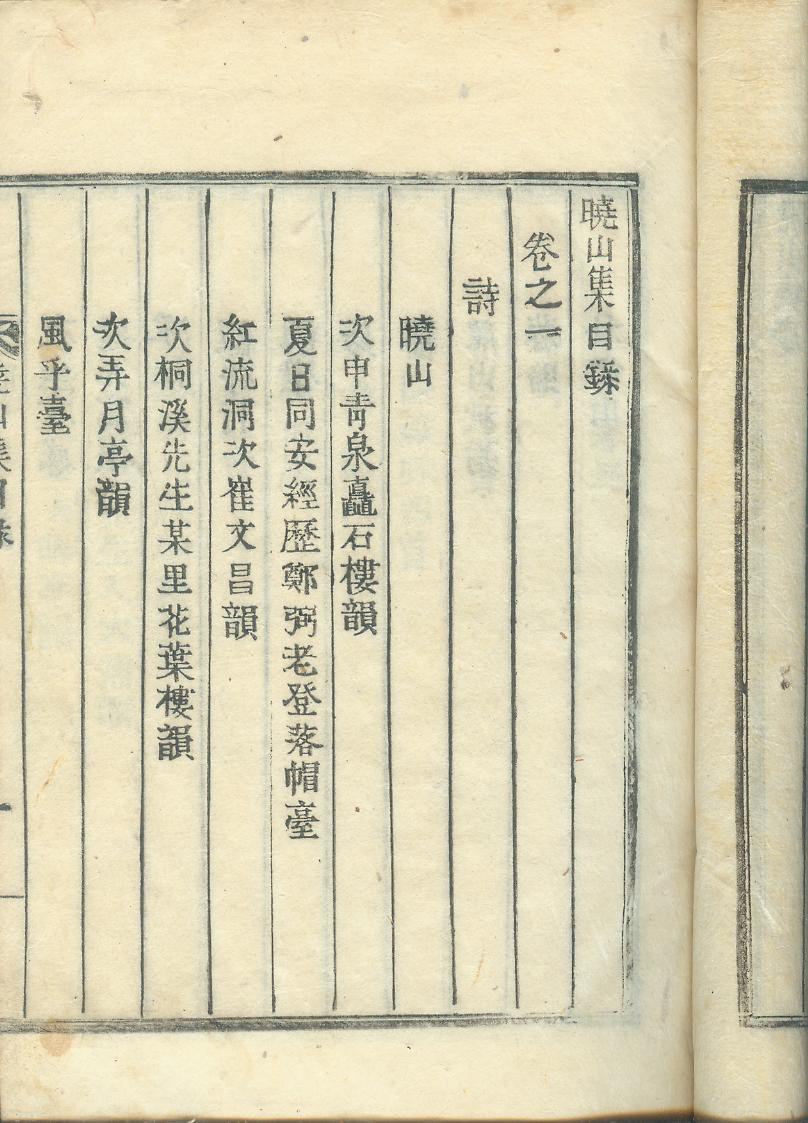 曉山集目錄
卷之一
詩
曉山
次申靑泉矗石樓韻
夏日同安經歷鄭弼老登落帽臺
紅流洞次崔文昌韻
次桐溪先生某里花葉樓韻
次弄月亭韻
風乎臺
山集目錄